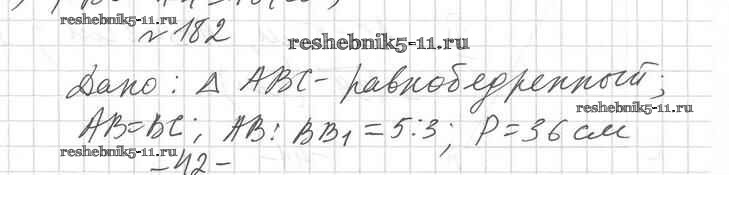 reshebnik5-11.ru
№182
reshebnik5-11.ru
Дано: △ ABC - равнобедренный;
reshebnik5-11.ru
AB=BC; AB:BB₁=5:3; P=36 см
reshebnik5-11.ru
-42-